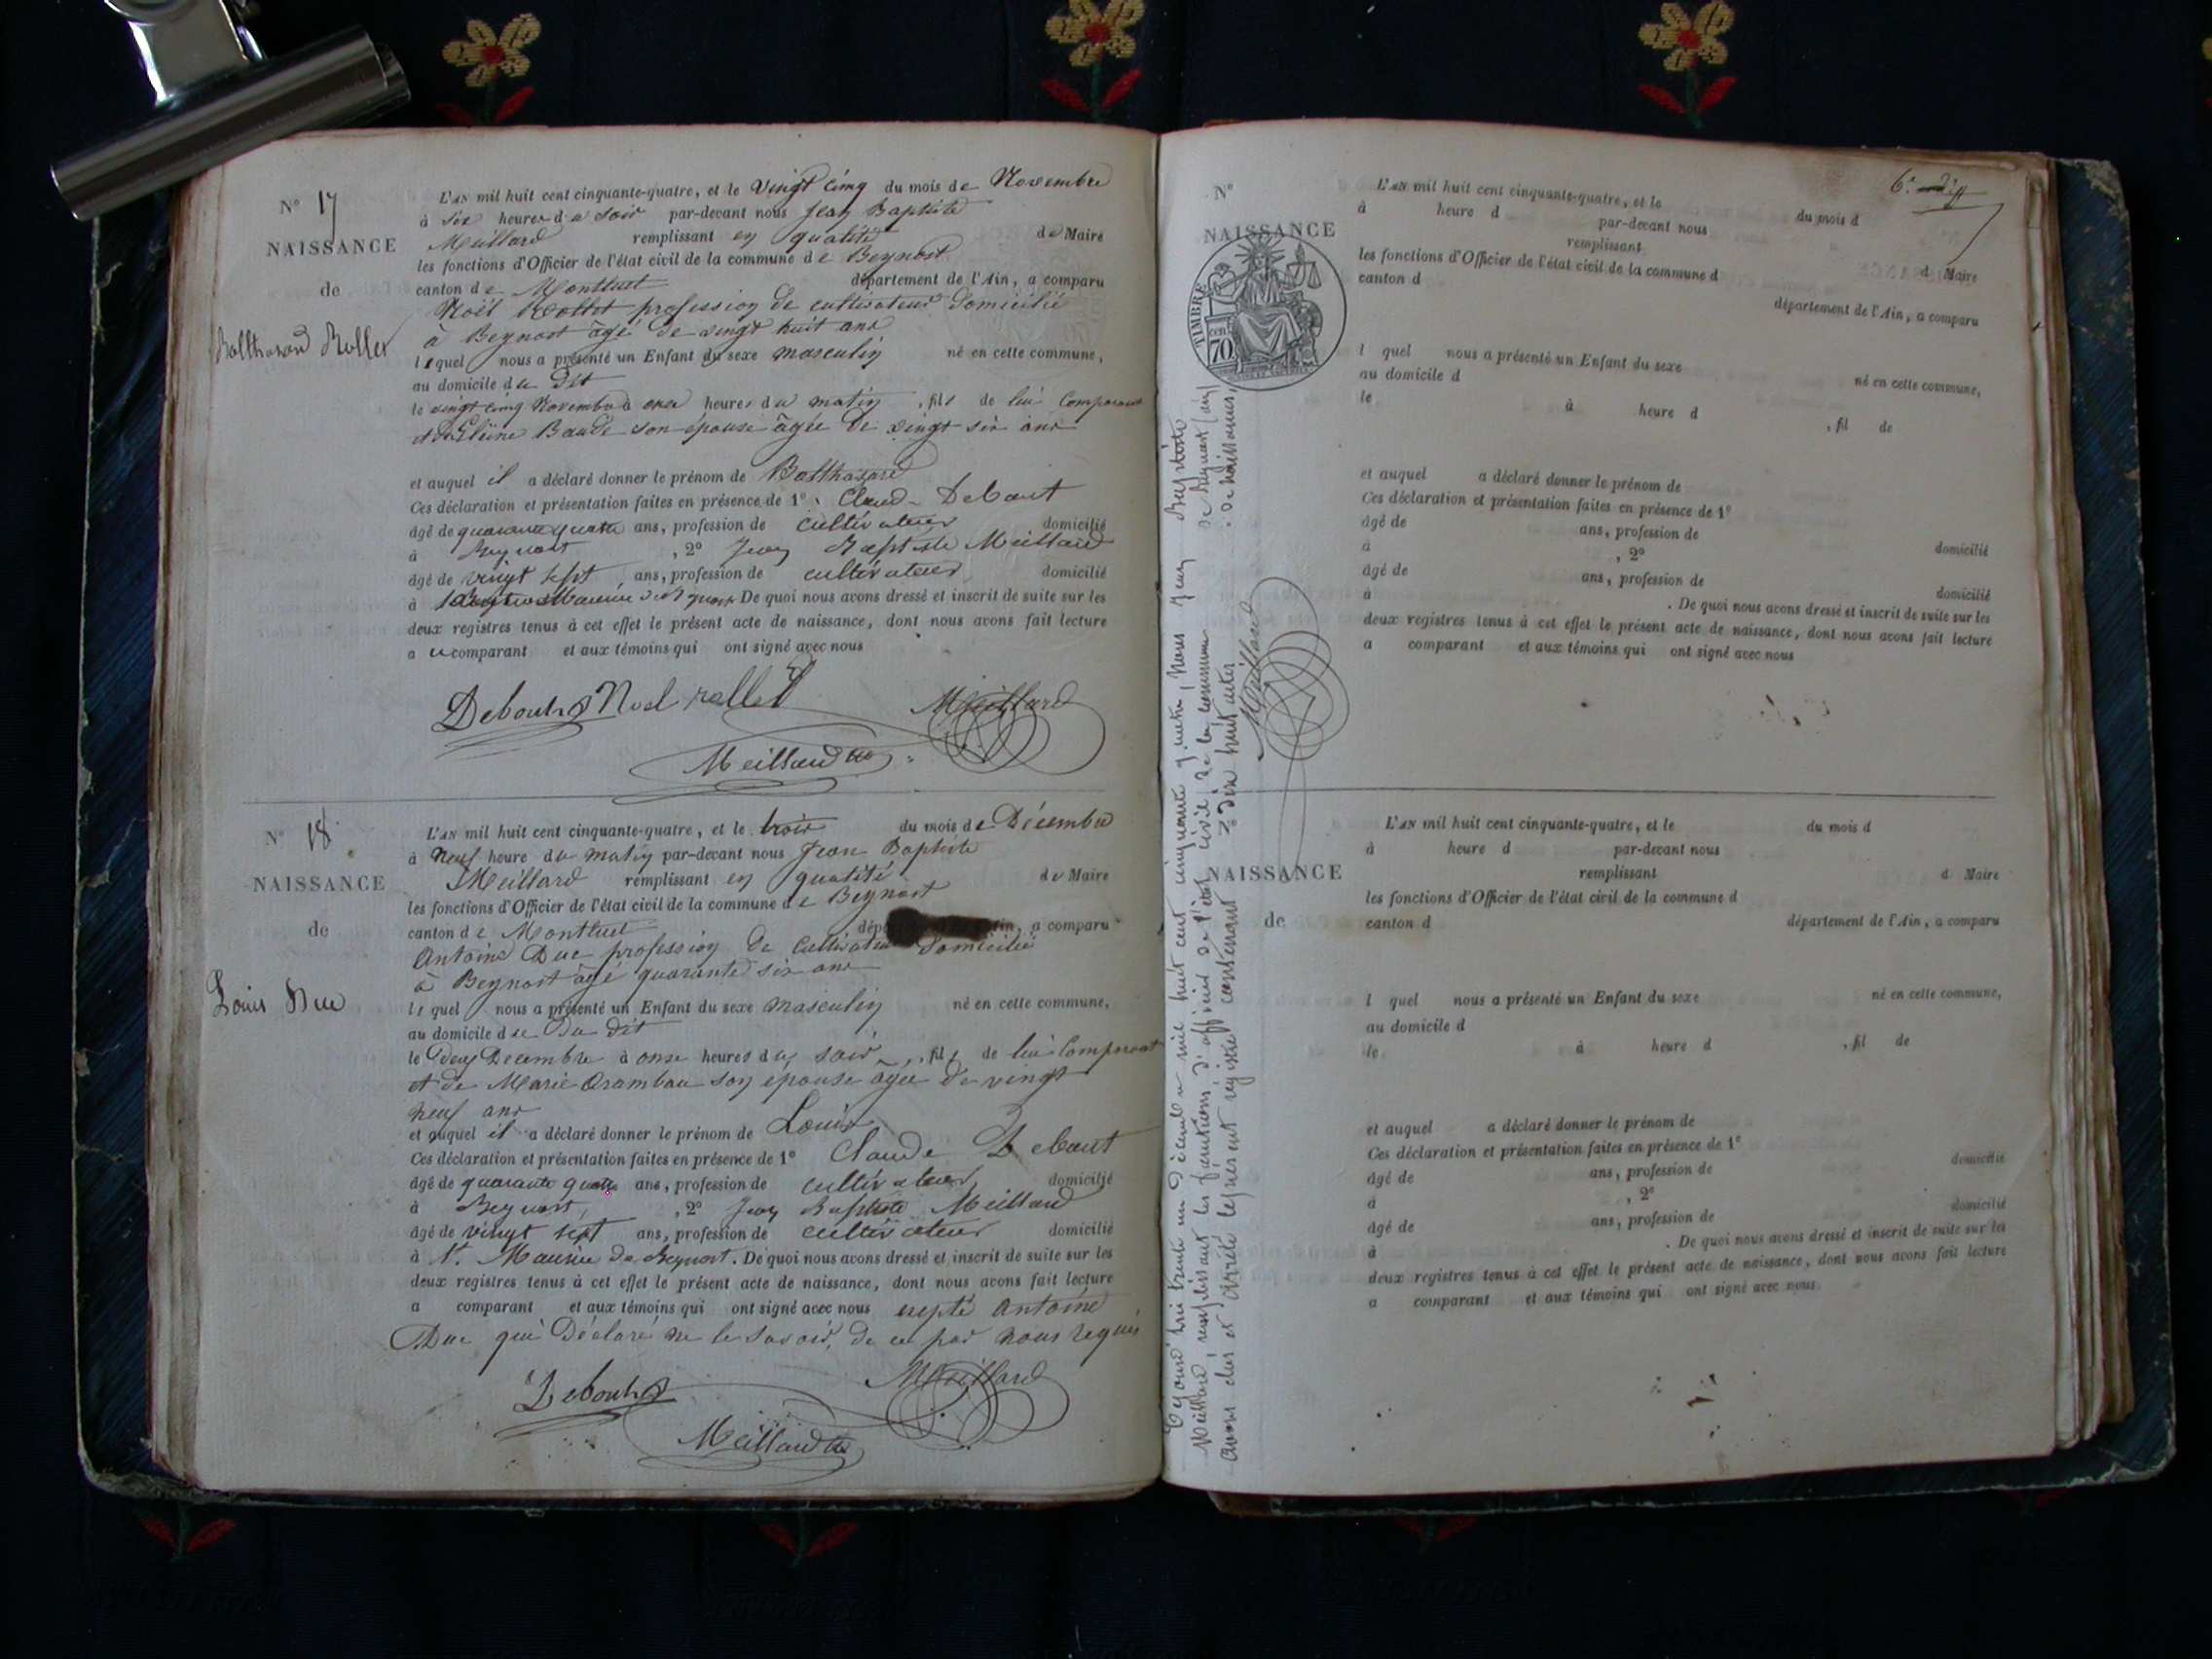 N° 17
NAISSANCE
de
Balthazard Rollet
L'AN mil huit cent cinquante-quatre, et le vingt cinq du mois de Novembre
à six heures du soir par-devant nous Jean Baptiste
Meillard remplissant en qualité de Maire
les fonctions d'Officier de l'état civil de la commune de Beynost
canton de Montluel département de l'Ain, a comparu
Noël Rollet profession de cultivateur domicilié
à Beynost âgé de vingt huit ans
lequel nous a présenté un Enfant du sexe masculin né en cette commune,
au domicile du dit
le vingt cinq Novembre à onze heures du matin , fils de lui Comparant
et Baude son épouse âgée de vingt six ans
et auquel il a déclaré donner le prénom de Balthazard
Ces déclaration et présentation faites en présence de 1° Claude Debout
âgé de quarante quatre ans, profession de cultivateur domicilié
à Beynost , 2° Jean Baptiste Meillard
âgé de vingt sept ans, profession de cultivateur domicilié
à Maurice de Beynost De quoi nous avons dressé et inscrit de suite sur les
deux registres tenus à cet effet le présent acte de naissance, dont nous avons fait lecture
au comparant et aux témoins qui ont signé avec nous
Debout Noel rollet Meillard
Meillard
N° 18
NAISSANCE
de
Louis Duc
L'AN mil huit cent cinquante-quatre, et le trois du mois de Décembre
à neuf heure du matin par-devant nous Jean Baptiste
Meillard remplissant en qualité de Maire
les fonctions d'Officier de l'état civil de la commune de Beynost
canton de Montluel a comparu
Antoine Duc profession de Cultivateur domicilié
à Beynost âgé quarante six ans
lequel nous a présenté un Enfant du sexe masculin né en cette commune,
au domicile du Du dit
le deux Décembre à onze heures du soir , fils de lui Comparant
et de Marie Orambau son épouse âgée de vingt
neuf ans
et auquel il a déclaré donner le prénom de Louis
Ces déclaration et présentation faites en présence de 1° Claude Debout
âgé de quarante quatre ans, profession de cultivateur domicilié
à Beynost, , 2° Jean Baptiste Meillard
âgé de vingt sept ans, profession de cultivateur domicilié
à St. Maurice de Beynost. De quoi nous avons dressé et inscrit de suite sur les
deux registres tenus à cet effet le présent acte de naissance, dont nous avons fait lecture
a comparant et aux témoins qui ont signé avec nous Antoine
Duc qui Déclaré ne le savoir, de ce par nous requis
Debout Meillard
Meillard
Cejourd'hui trente un Décembre mil huit cent cinquante quatre, Nous Jean Baptiste
Meillard, remplissant les fonctions d'officier de l'état civil de la commune de Beynost (ain)
avons clos et arrêté le présent registre contenant dix huit actes de naissances,
Meillard
6e
N°
NAISSANCE
TIMBRE
cen
70
L'AN mil huit cent cinquante-quatre, et le du mois d
à heure d par-devant nous
remplissant d Maire
les fonctions d'Officier de l'état civil de la commune d
canton d département de l'Ain, a comparu
l quel nous a présenté un Enfant du sexe né en cette commune,
au domicile d
le à heure d , fil de
et auquel a déclaré donner le prénom de
Ces déclaration et présentation faites en présence de 1°
âgé de ans, profession de domicilié
à , 2°
âgé de ans, profession de domicilié
à . De quoi nous avons dressé et inscrit de suite sur les
deux registres tenus à cet effet le présent acte de naissance, dont nous avons fait lecture
a comparant et aux témoins qui ont signé avec nous
NAISSANCE
de
L'AN mil huit cent cinquante-quatre, et le du mois d
à heure d par-devant nous
remplissant d Maire
les fonctions d'Officier de l'état civil de la commune d
canton d département de l'Ain, a comparu
l quel nous a présenté un Enfant du sexe né en cette commune,
au domicile d
le à heure d , fil de
et auquel a déclaré donner le prénom de
Ces déclaration et présentation faites en présence de 1°
âgé de ans, profession de domicilié
à , 2°
âgé de ans, profession de domicilié
à . De quoi nous avons dressé et inscrit de suite sur les
deux registres tenus à cet effet le présent acte de naissance, dont nous avons fait lecture
a comparant et aux témoins qui ont signé avec nous